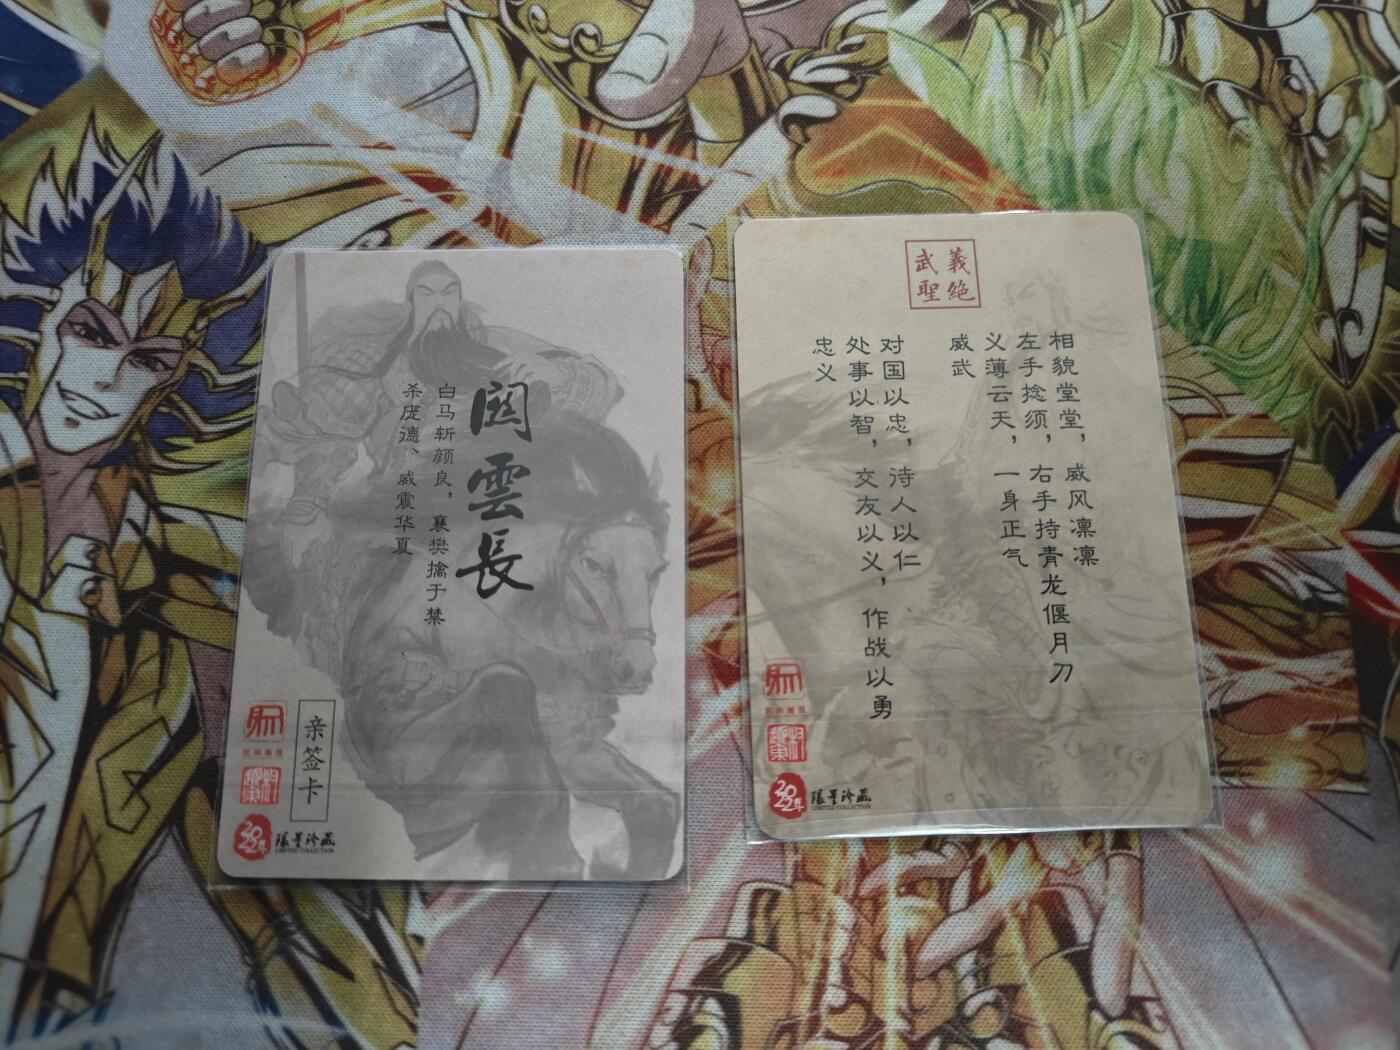 關雲長
白马斩颜良，襄樊擒于禁
杀庞德、威震华夏
亲签卡
2022年
限量珍藏
LIMITED COLLECTION
義絶
武聖
相貌堂堂，威风凛凛
左手捻须，右手持青龙偃月刀
义薄云天，一身正气
威武
对国以忠，待人以仁
处事以智，交友以义，作战以勇
忠义
2022年
限量珍藏
LIMITED COLLECTION